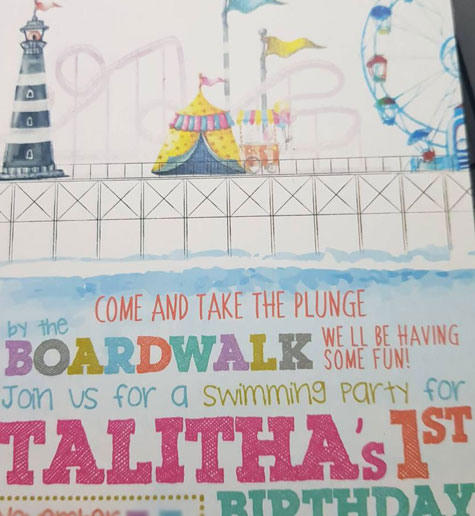 COME AND TAKE THE PLUNGE
by the
BOARDWALK
WE'LL BE HAVING
SOME FUN!
Join us for a swimming party for
TALITHA's 1ST
BIRTHDAY
November